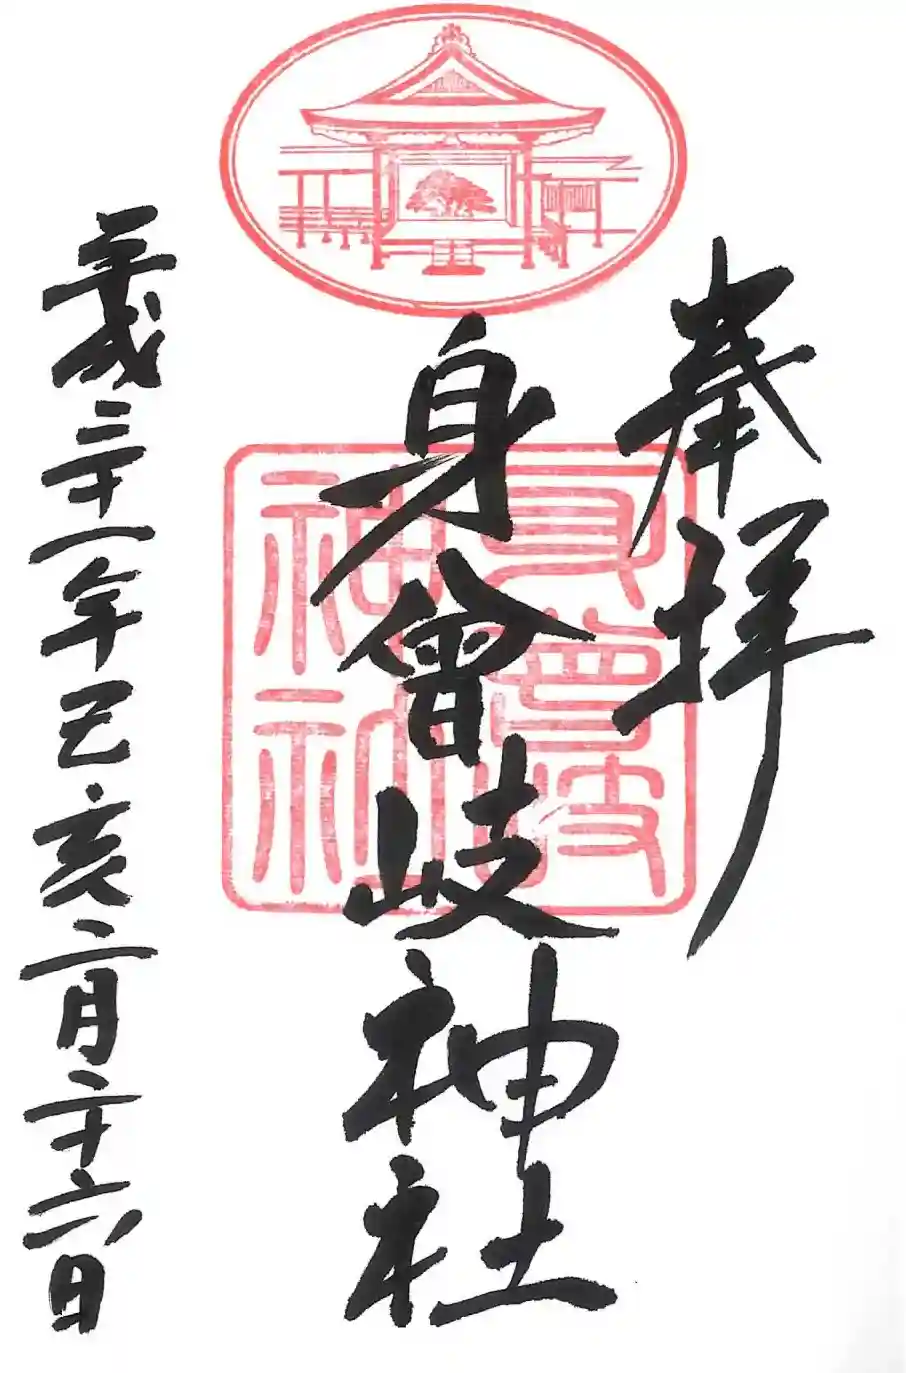 奉拝
身曾岐神社
身曾岐
神社
平成三十一年己亥二月二十六日